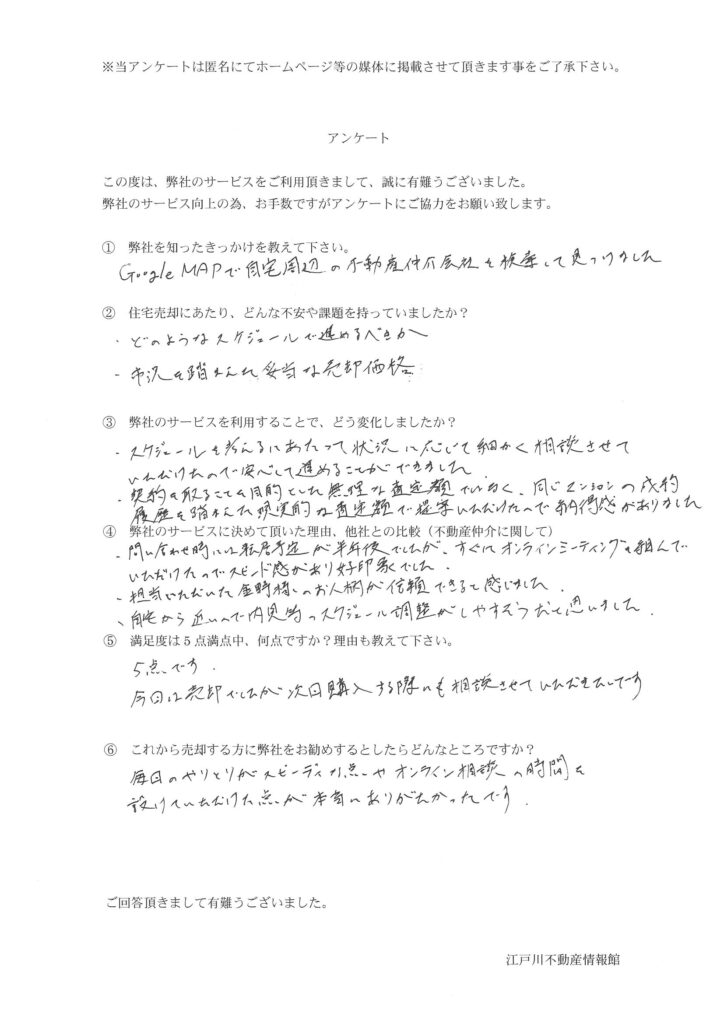 ※当アンケートは匿名にてホームページ等の媒体に掲載させて頂きます事をご了承下さい。
アンケート
この度は、弊社のサービスをご利用頂きまして、誠に有難うございました。
弊社のサービス向上の為、お手数ですがアンケートにご協力をお願い致します。
① 弊社を知ったきっかけを教えて下さい。
Google MAPで自宅周辺の不動産仲介会社を検索して見つけました
② 住宅売却にあたり、どんな不安や課題を持っていましたか？
・どのようなスケジュールで進めるべきか
・市況を踏まえた妥当な売却価格
③ 弊社のサービスを利用することで、どう変化しましたか？
・スケジュールを考えるにあたって状況に応じて細かく相談させて
いただけたので安心して進めることができました
・契約を取ることを目的とした無理な査定額でなく、同じマンションの成約
履歴を踏まえた現実的な査定額で提案いただけたので納得感がありました
④ 弊社のサービスに決めて頂いた理由、他社との比較（不動産仲介に関して）
・問い合わせ時には転居予定が半年後でしたが、すぐにオンラインミーティングを組んで
いただけたのでスピード感があり好印象でした
・担当いただいた金時様のお人柄が信頼できると感じました
・自宅から近いので内見等のスケジュール調整がしやすそうだと思いました
⑤ 満足度は５点満点中、何点ですか？理由も教えて下さい。
5点です
今回は売却でしたが次回購入する際にも相談させていただきたいです
⑥ これから売却する方に弊社をお勧めするとしたらどんなところですか？
毎日のやりとりがスピーディな点やオンライン相談の時間を
設けていただけた点が本当にありがたかったです
ご回答頂きまして有難うございました。
江戸川不動産情報館